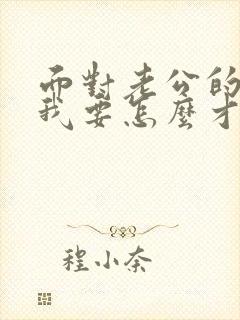 而對老公的
我要怎麼才
程小奈